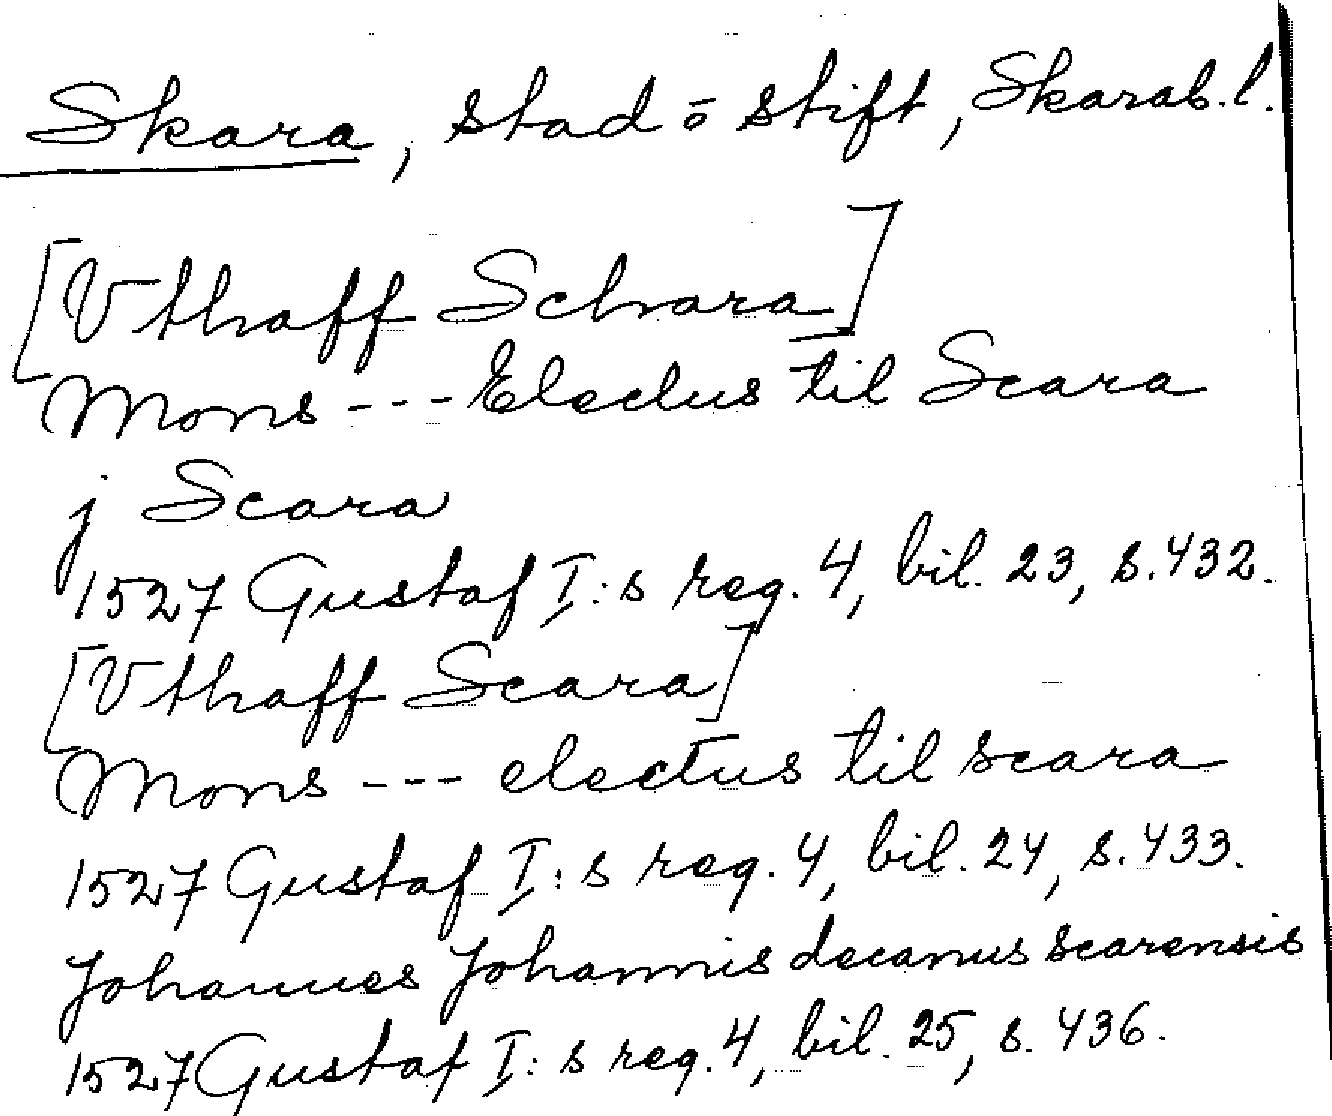 Skara, stad o stift, Skarab.l.
[Vthaff Schara]
Mons --- Electus til Scara
j Scara
1527 Gustaf I:s reg. 4, bil. 23, s.432.
[Vthaff Scara]
Mons --- electus til scara
1527 Gustaf I:s reg. 4, bil. 24, s.433.
Johannes Johannis decanus scarensis
1527 Gustaf I:s reg. 4, bil. 25, s. 436.